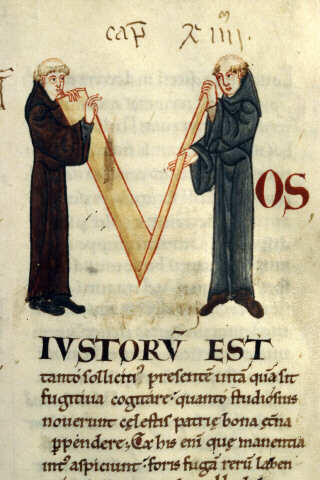 cap̄ xiiii.
MOS
IVSTORV̄ EST
tanto sollicitiꝰ presentē uitā quā sit
fugitiua cogitare. quanto studiosius
nouerunt celestis patrie bona et̄na
ꝑpendere. Ex his eni᷑ que manentia
intꝰ aspiciunt. foris fugā rerū laben